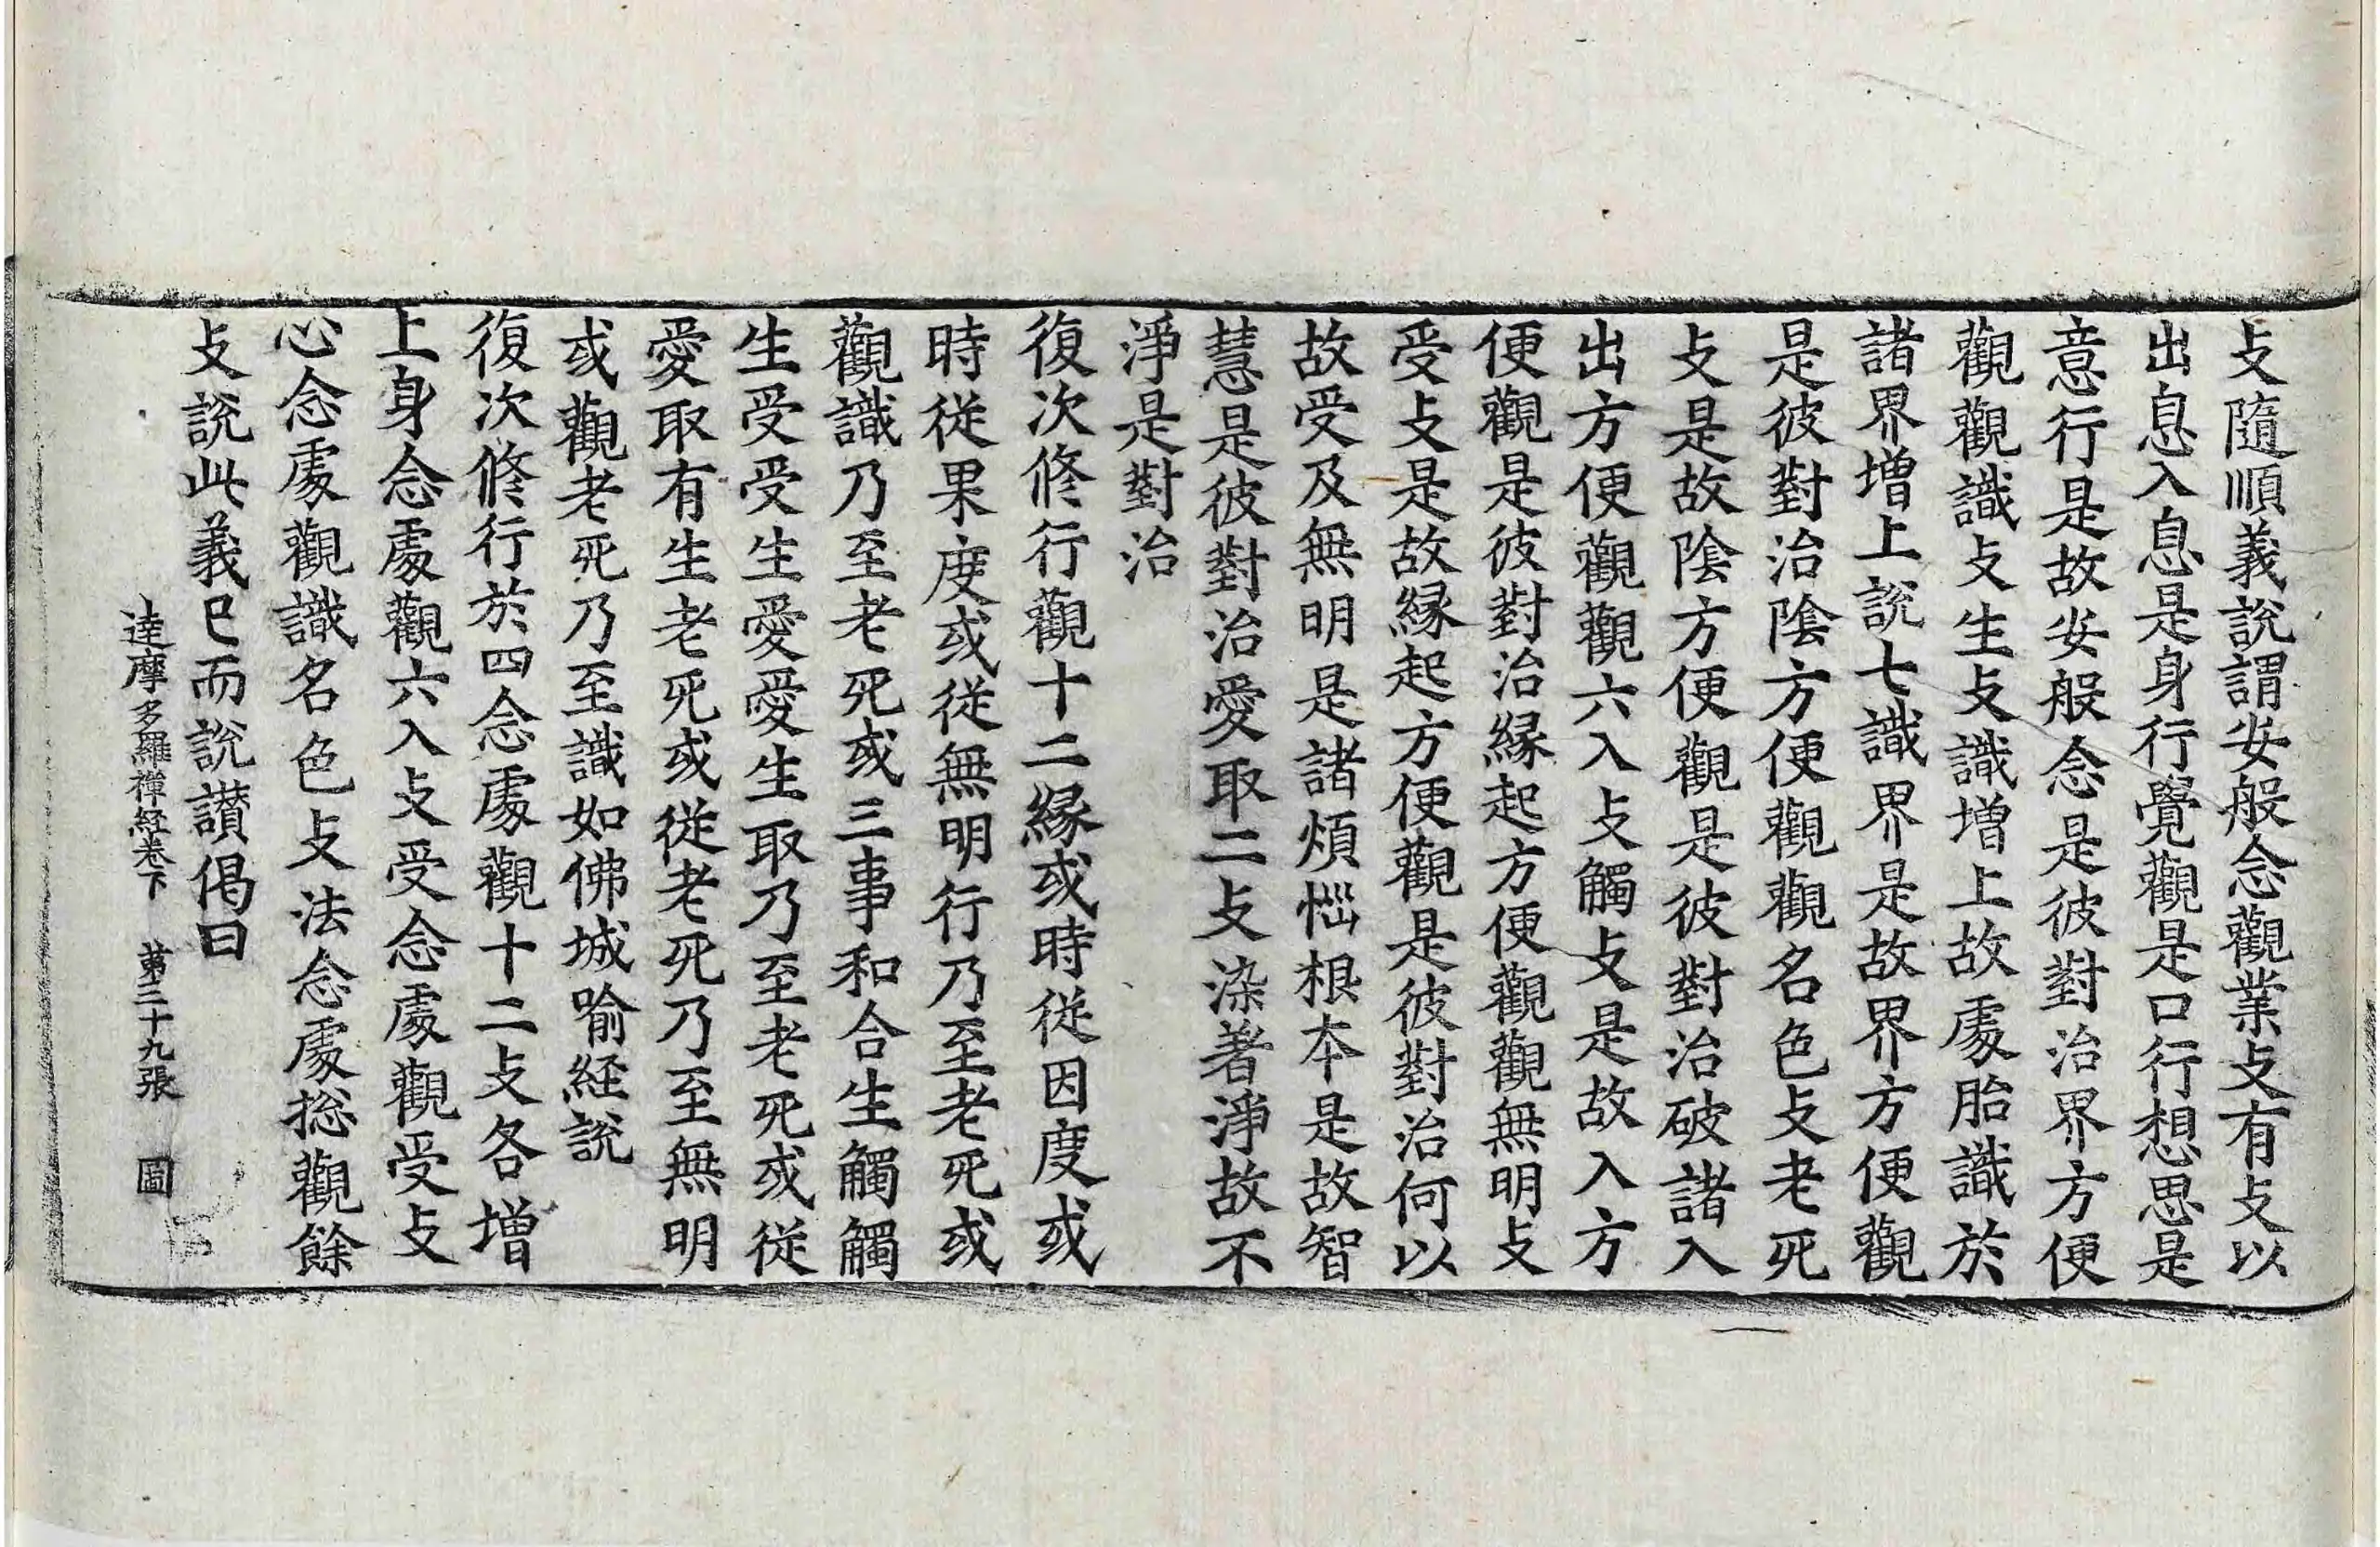 攴隨順義說謂安般念觀業攴有攴以
出息入息是身行覺觀是口行想思是
意行是故安般念是彼對治界方便
觀觀識攴生攴識增上故處胎識於
諸界增上說七識界是故界方便觀
是彼對治陰方便觀觀名色攴老死
攴是故陰方便觀是彼對治破諸入
出方便觀觀六入攴觸攴是故入方
便觀是彼對治緣起方便觀觀無明攴
受攴是故緣起方便觀是彼對治何以
故受及無明是諸煩惱根本是故智
慧是彼對治愛取二攴染著淨故不
淨是對治
復次修行觀十二緣或時從因度或
時從果度或從無明行乃至老死或
觀識乃至老死或三事和合生觸觸
生受受生愛愛生取乃至老死或從
愛取有生老死或從老死乃至無明
或觀老死乃至識如佛城喻経說
復次修行於四念處觀十二攴各增
上身念處觀六入攴受念處觀受攴
心念處觀識名色攴法念處捴觀餘
攴說此義已而說讃偈曰
達摩多羅禪経卷下 第三十九張 圖